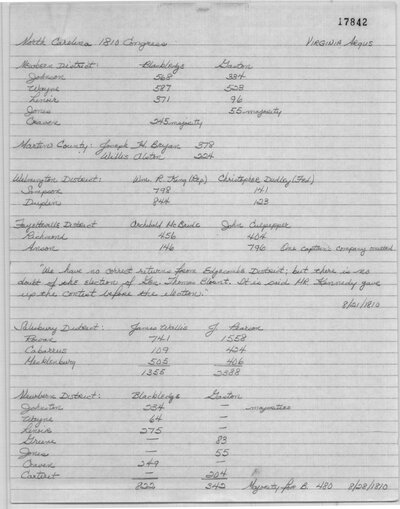 17842
North Carolina 1810 Congress VIRGINIA Argus
Newbern District: Blackledge Gaston
Johnson 568 334
Wayne 587 523
Lenoir 371 96
Jones 55 majority
Craven 245 majority
Martins County: Joseph H. Bryan 378
Willis Alston 224
Wilmington District: Wm. R. King (Rep) Christopher Dudley (Fed)
Simpson 798 141
Duplin 844 123
Fayetteville District Archibald McBride John Culpepper
Richmond 456 404
Anson 146 796 One captain's company omitted.
"We have no correct returns from Edgecomb District; but there is no
doubt of the election of Gen. Thomas Blount. It is said Mr. Kennedy gave
up the contest before the election."
8/21/1810
Salisbury District: James Wallis J. Pearson
Rowan 741 1558
Cabarrus 109 424
Mecklenburg 505 406
1355 2388
Newbern District: Blackledge Gaston
Johnston 234 — majorities
Wayne 64 —
Lenoir 275 —
Greene — 83
Jones — 55
Craven 249 —
Carteret — 204
822 342 Majority for B. 480 8/28/1810